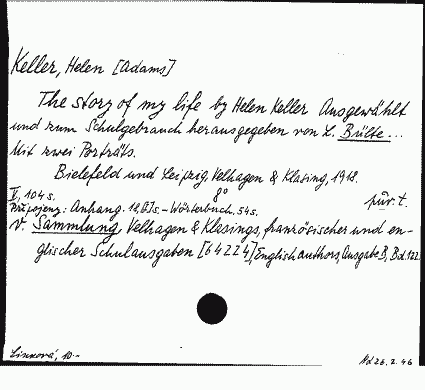 Keller, Helen [Adams]
The story of my life by Helen Keller Ausgewählt
und zum Schulgebrauch herausgegeben von L. Bülte...
Mit zwei Porträts.
Bielefeld und Leipzig, Velhagen & Klasing, 1918.
V, 104 s. 8° pův. t.
Připojeny: Anhang. 18, [I] s. - Wörterbuch. 54 s.
V. Sammlung, Velhagen & Klasings, französischer und en-
glischer Schulausgaben [64224], English authors, Ausgabe B, Bd. 122
Linková, 10.-
26.2.46